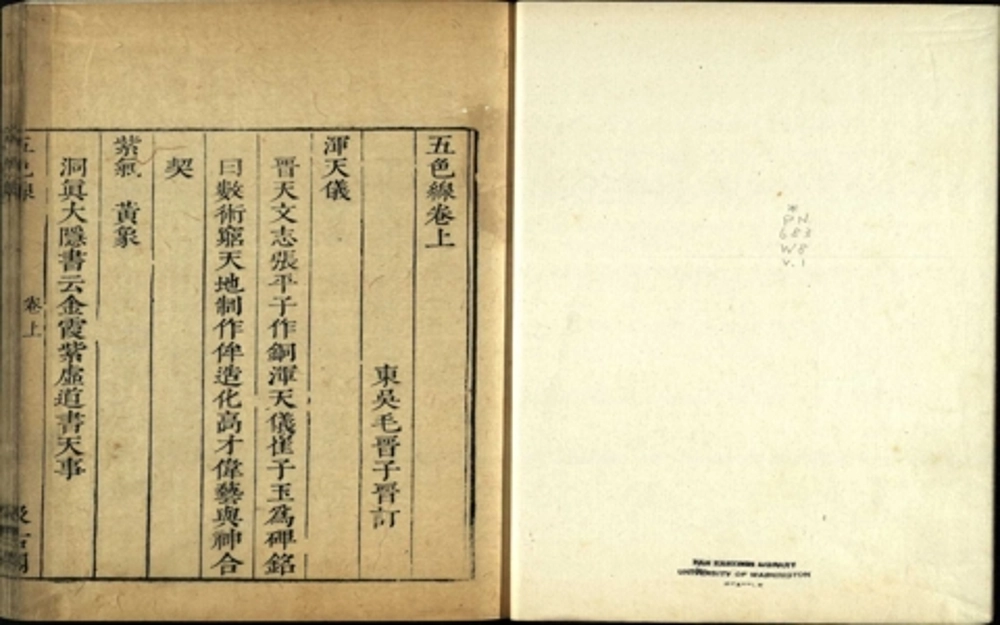 五色線卷上
東吳毛晉子晉訂
渾天儀
晉天文志張平子作銅渾天儀崔子玉為碑銘
曰數術窮天地制作侔造化高才偉藝與神合
契
紫氣　黃象
洞眞大隱書云金霞紫虛道書天事
五色線
卷上
汲古閣
*
PN
683
W8
v.1
FAR EASTERN LIBRARY
UNIVERSITY OF WASHINGTON